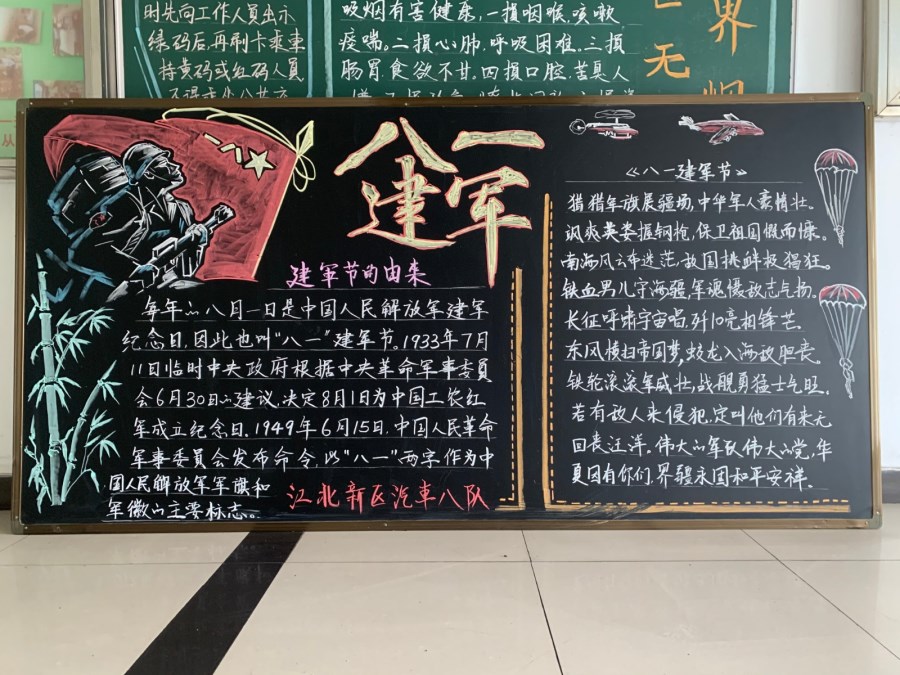 时先向工作人员出示
绿码后,再刷卡乘車
持黄码或红码人員
吸烟有害健康,一損咽喉,咳嗽
痰喘。二損心肺,呼吸困难。三損
腸胃,食欲不甘。四損口腔,苦臭人
界
无
烟
从
八一
八一
建军
建军节的由来
每年的八月一日是中国人民解放军建军
纪念日,因此也叫“八一”建军节。1933年7月
11日临时中央政府根据中央革命军事委員
会6月30日的建议,决定8月1日为中国工农红
军成立纪念日。1949年6月15日,中国人民革命
军事委員会发布命令,以“八一”两字作为中
国人民解放军军旗和
军徽的主要标志。
江北新区汽車八队
《八一建军节》
猎猎军旗展疆场,中华军人豪情壮。
飒爽英姿握钢枪,保卫祖国慨而慷。
南海风云布迷茫,敌国挑衅极猖狂。
铁血男儿守海疆,军魂慑敌志气扬。
长征呼啸宇宙唱,歼10亮相锋芒。
东风横扫帝国梦,蛟龙入海敌胆丧。
铁轮滚滚军威壮,战舰勇猛士气旺。
若有敌人来侵犯,定叫他们有来无
回丧汪洋。伟大的军队伟大的党,华
夏因有你们,界疆永固和平安祥。